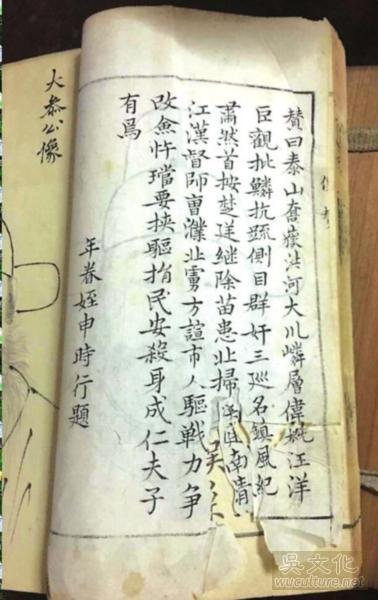 贊曰泰山奮洪河大川嶙層偉姚汪洋
巨觀批鱗抗疏側目群奸三巡名鎮風紀
肅然首按楚继除苗患北掃南清
江漢督師曹濮北虜方諠市人驅戰力争
改僉忤璫要挾驅捐民安殺身成仁夫子
有爲
年眷姪申時行題
大叅公像
吳文化
wuculture.net